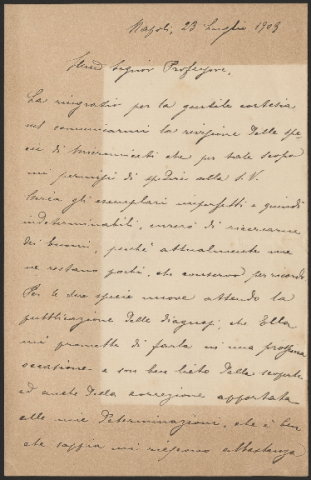 Napoli, 23 Luglio 1909
Signor Professore,
La ringrazio per la gentile cortesia
nel comunicarmi la revisione delle spe-
cie di che per tale scopo
mi permisi di spedire alla S. V.
gli esemplari imperfetti e quindi
indeterminabili, di ricercarne
dei buoni, perché attualmente me
ne restano pochi, che conservo per ricordo
Per le due specie nuove attendo la
pubblicazione delle diagnosi, che Ella
mi promette di farla in una prossima
occasione e son ben lieto della scoperta
ed anche della correzione apportata
alle mie determinazioni, che è ben
che sappia mi riescono abbastanza